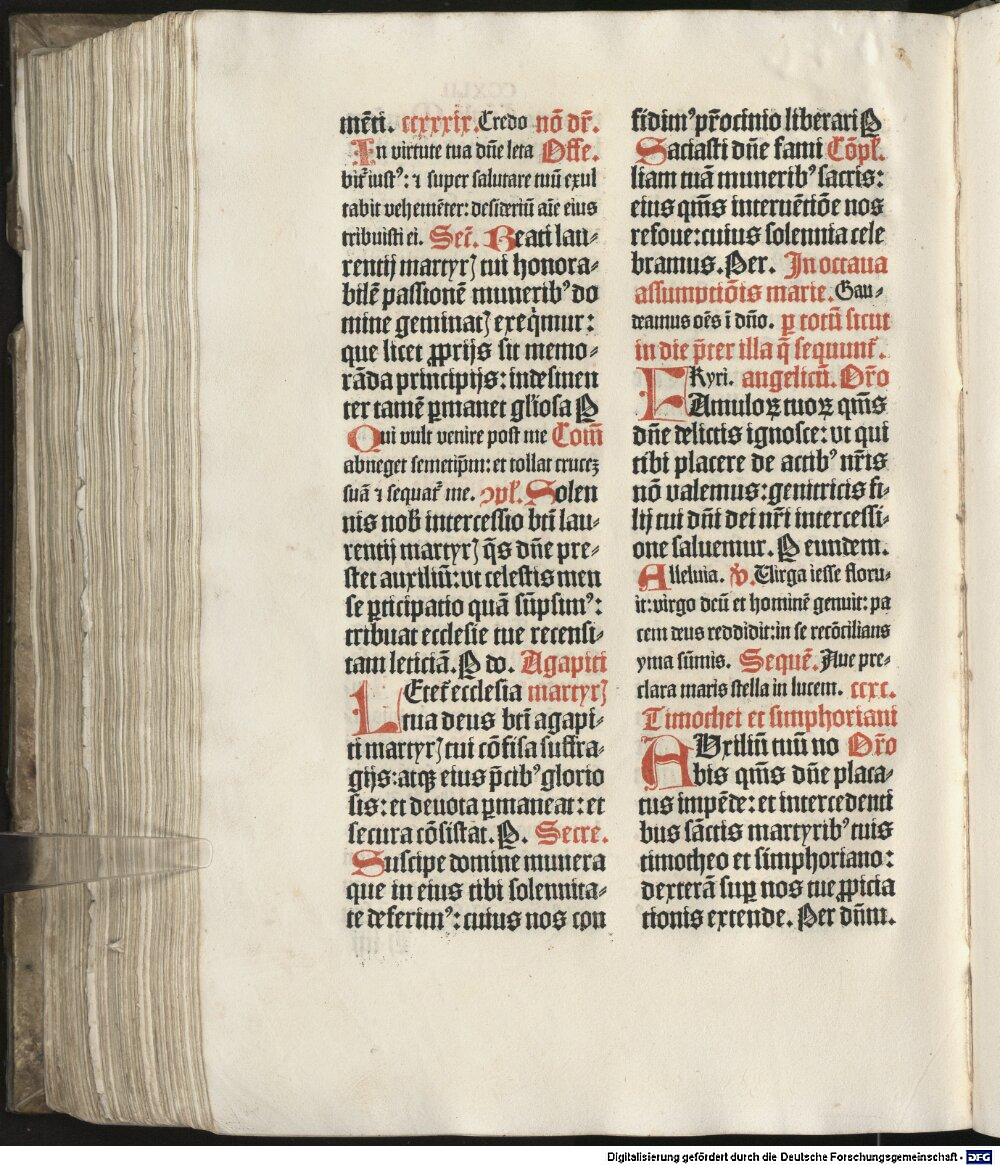 mēti. ccxxxix. Credo nō dr̄.
In virtute tua dn̄e leta Offe.
bit̄ iustꝰ: ⁊ super salutare tuū exul
tabit vehemēter: desideriū aīe eius
tribuisti ei. Secr̄. Beati lau-
rentij martyrꝭ tui honora-
bilē passionē muneribꝰ do
mine geminatꝭ exeq̄mur:
que licet ꝓprijs sit memo-
rāda principijs: indesinen
ter tamē ꝑmanet gl̄iosa P
Qui vult venire post me Com̄
abneget semetip̄m: et tollat crucez
suā ⁊ sequat̄ me. ꝯpl̄. Solen
nis nob̄ intercessio bt̄i lau-
rentij martyrꝭ q̄s dn̄e pre-
stet auxiliū: vt celestis men
se ꝑticipatio quā sūpsimꝰ:
tribuat ecclesie tue recensi-
tam leticiā. P do. Agapiti
LEtet̄ ecclesia martyrꝭ
tua deus bt̄i agapi-
ti martyrꝭ tui cōfisa suffra-
gijs: atqꝫ eius p̄cibꝰ glorio
sis: et deuota ꝑmaneat: et
secura cōsistat. P. Secre.
Suscipe domine munera
que in eius tibi solennita-
te deferimꝰ: cuius nos con
fidimꝰ pr̄ocinio liberari P
Saciasti dn̄e fami Cōpl̄.
liam tuā muneribꝰ sacris:
eius qm̄s interuētiōe nos
refoue: cuius solennia cele
bramus. Per. In octaua
assumptiōis marie. Gau-
deamus oēs ī dn̄o. ꝑ totū sicut
in die p̄ter illa q̄ sequunt̄.
Kyri. angelicū. Or̄o
FAmuloꝝ tuoꝝ qm̄s
dn̄e delictis ignosce: vt qui
tibi placere de actibꝰ nr̄is
nō valemus: genitricis fi-
lij tui dn̄i dei nr̄i intercessi-
one saluemur. P eundem.
Alleluia. ℣. Virga iesse floru-
it: virgo deū et hominē genuit: pa
cem deus reddidit: in se recōcilians
yma sūmis. Sequē. Aue pre-
clara maris stella in lucem. ccxc.
Timothei et simphoriani
AUxiliū tuū no Or̄o
bis qm̄s dn̄e placa-
tus impēde: et intercedenti
bus sāctis martyribꝰ tuis
timotheo et simphoriano:
dexterā suꝑ nos tue ꝓpicia
tionis extende. Per dn̄m.
Digitalisierung gefördert durch die Deutsche Forschungsgemeinschaft - DFG